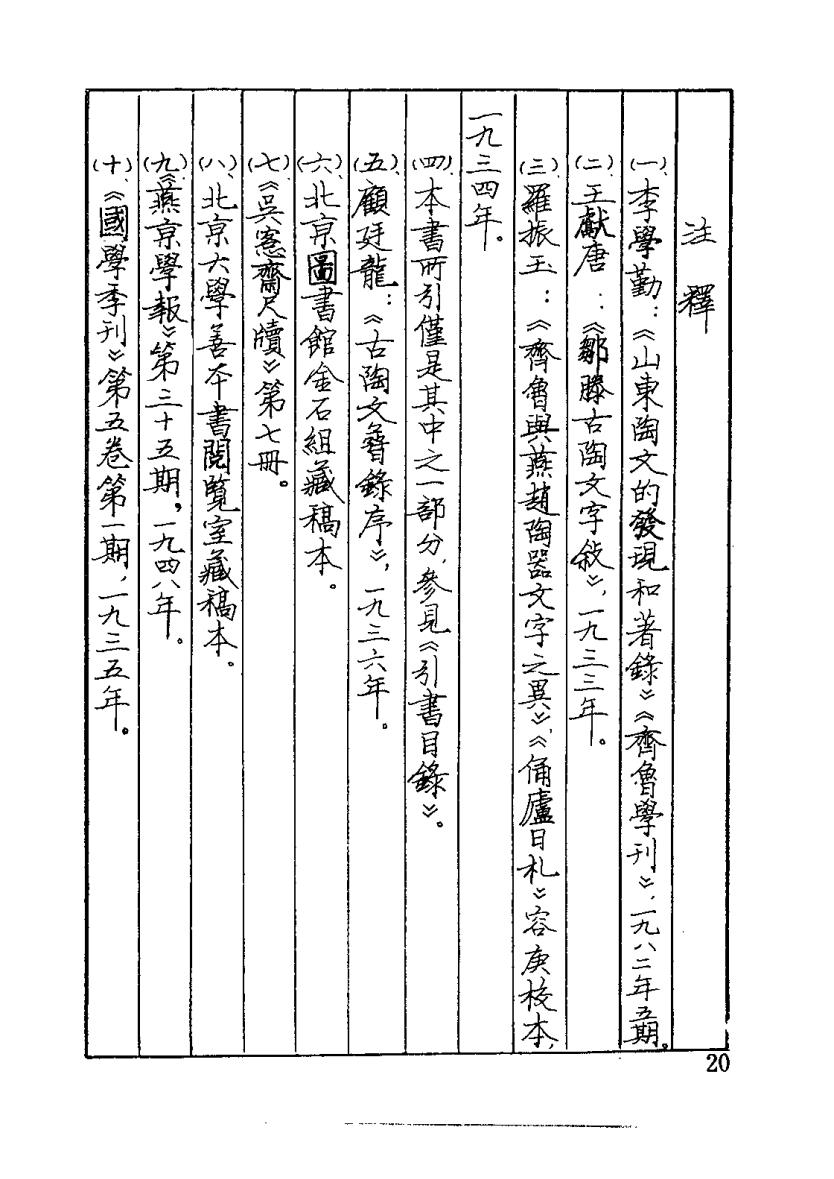 注釋
(一)、李學勤：《山東陶文的發現和著錄》《齊魯學刊》，一九八二年五期。
(二)、王獻唐：《鄒滕古陶文字敍》，一九三三年。
(三)、羅振玉：《齊魯與燕趙陶器文字之異》，《俑廬日札》容庚校本，
一九三四年。
(四)、本書所引僅是其中之一部分，參見《引書目錄》。
(五)、顧廷龍：《古陶文𦿉錄序》，一九三六年。
(六)、北京圖書館金石組藏稿本。
(七)、《吳愙齋尺牘》第七冊。
(八)、北京大學善本書閱覽室藏稿本。
(九)、《燕京學報》第三十五期，一九四八年。
(十)、《國學季刊》第五卷第一期，一九三五年。
20